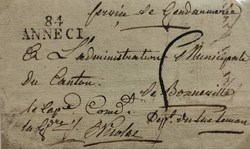 84
ANNECI
Service de Gendarmerie
A L'administration Municipale
du Canton
de Bonneville
Dept. du Lac Leman
Le Cap.e Com.dt
Nicolas